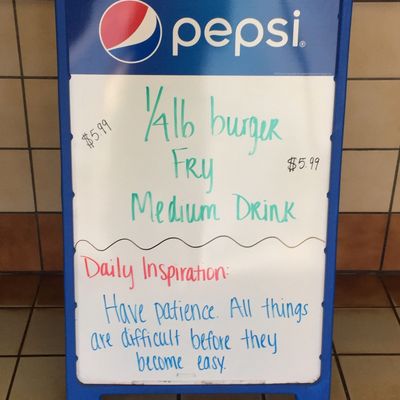 pepsi®
1/4lb burger
$5.99
Fry
$5.99
Medium Drink
Daily Inspiration:
Have patience. All things
are difficult before they
become easy.